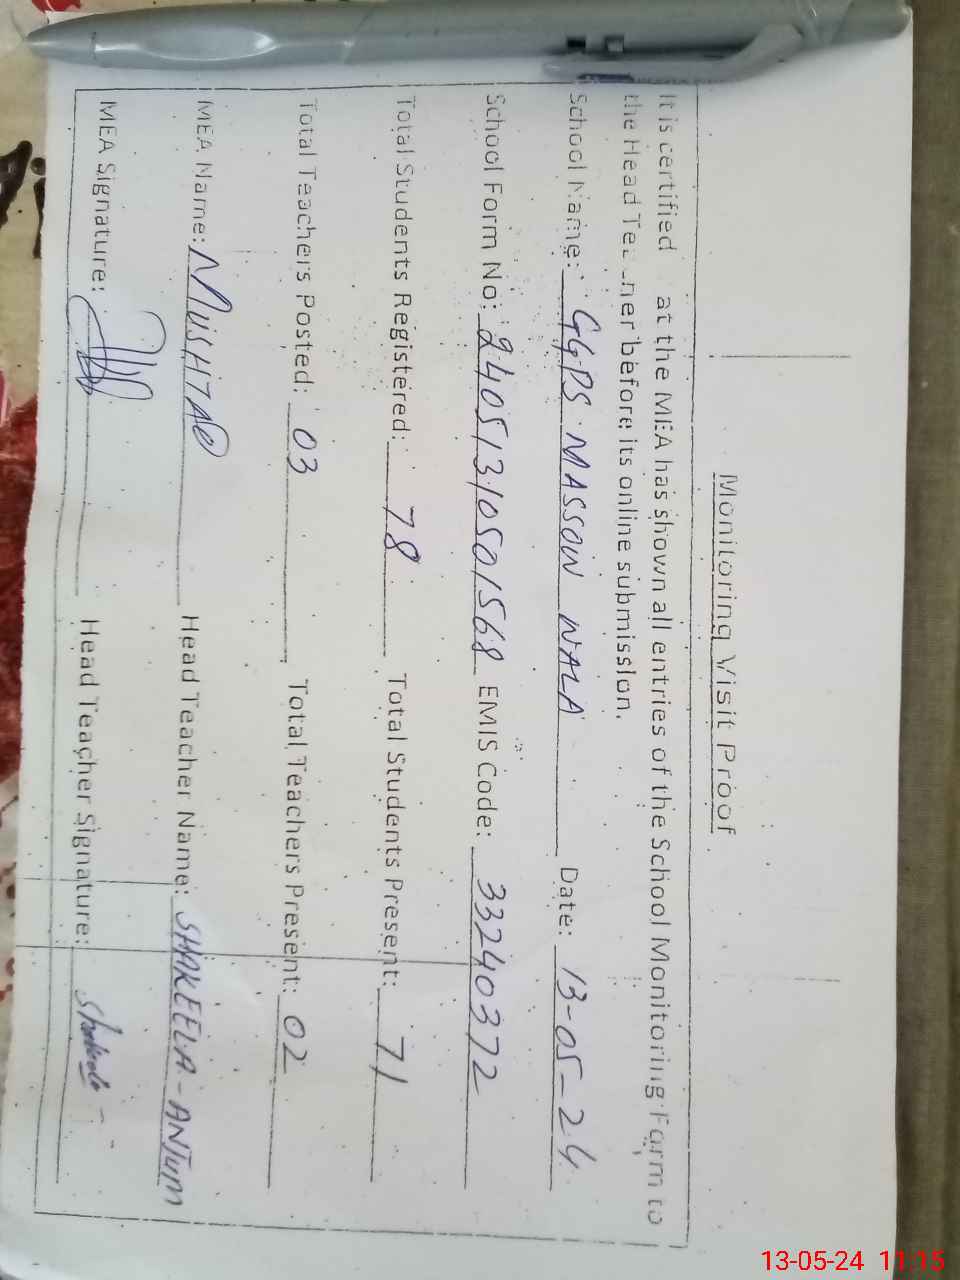 Monitoring Visit Proof
It is certified at the MEA has shown all entries of the School Monitoring Form to
the Head Te ner before its online submission.
School Name: GGPS MASSOW WALA Date: 13-05-24
School Form No: 2405131050 1568 EMIS Code: 33240372
Total Students Registered: 78 Total Students Present: 71
Total Teachers Posted: 03 Total Teachers Present: 02
MEA Name: MUSHTAQ Head Teacher Name: SHAKEELA-ANJUM
MEA Signature: Head Teacher Signature: Shakeela
13-05-24 11:15